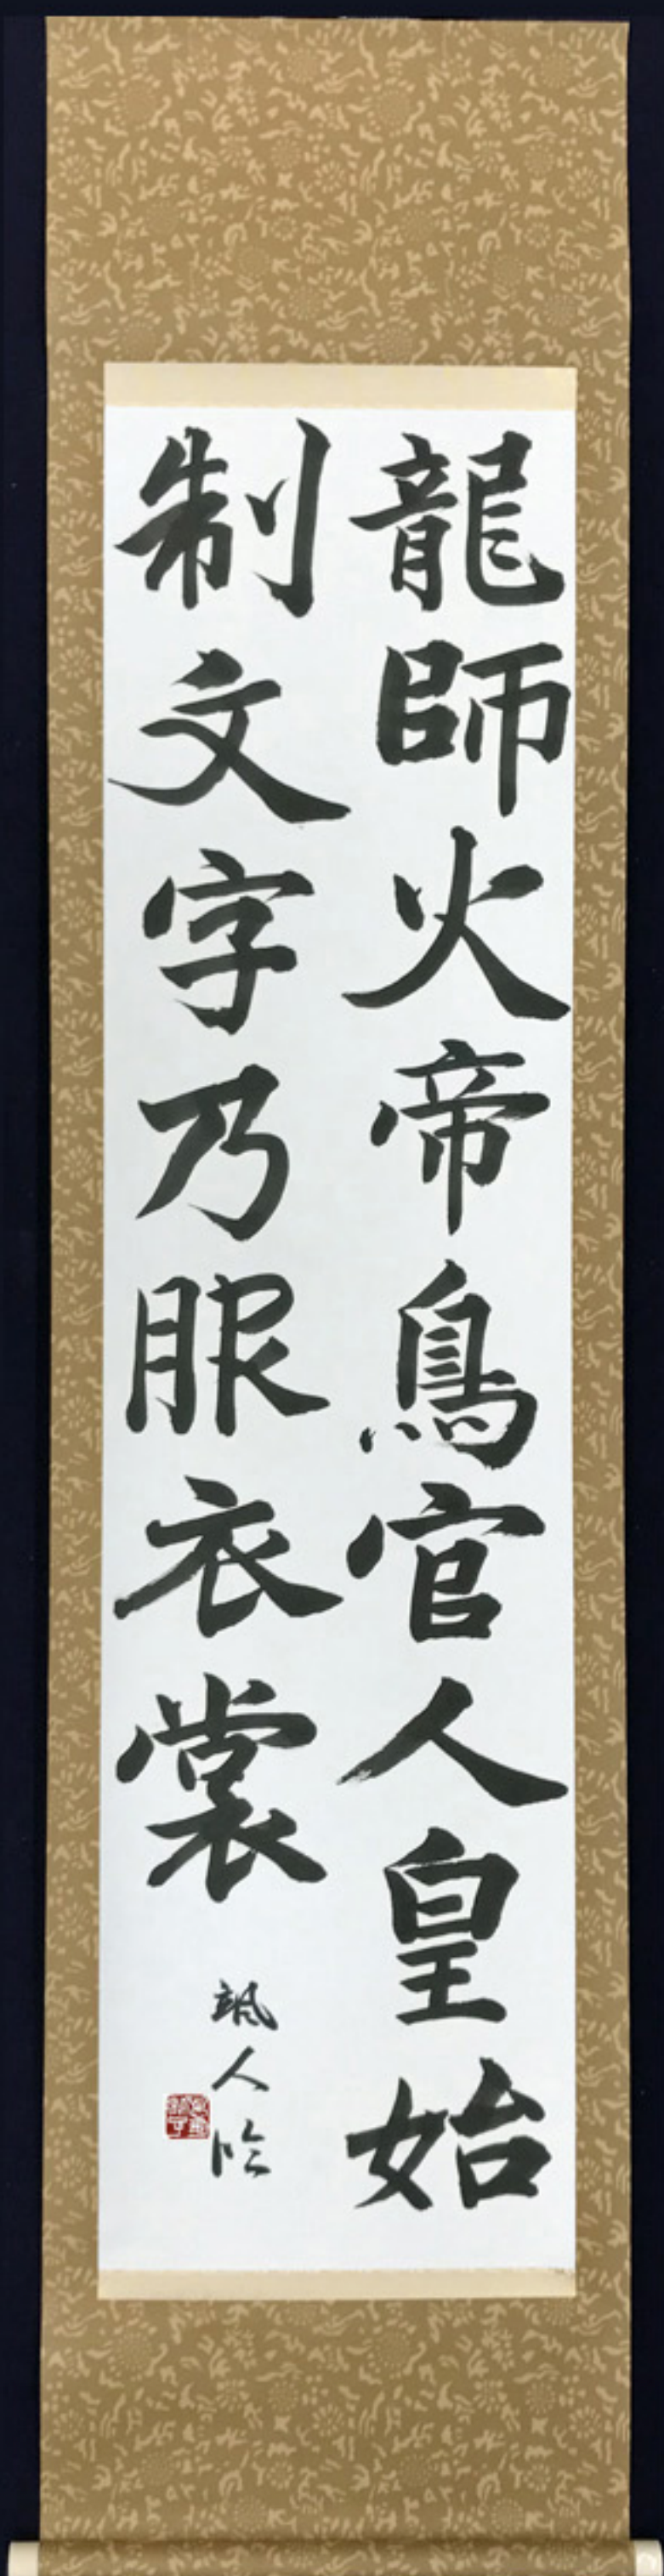 龍師火帝鳥官人皇始
制文字乃服衣裳
颯人臨